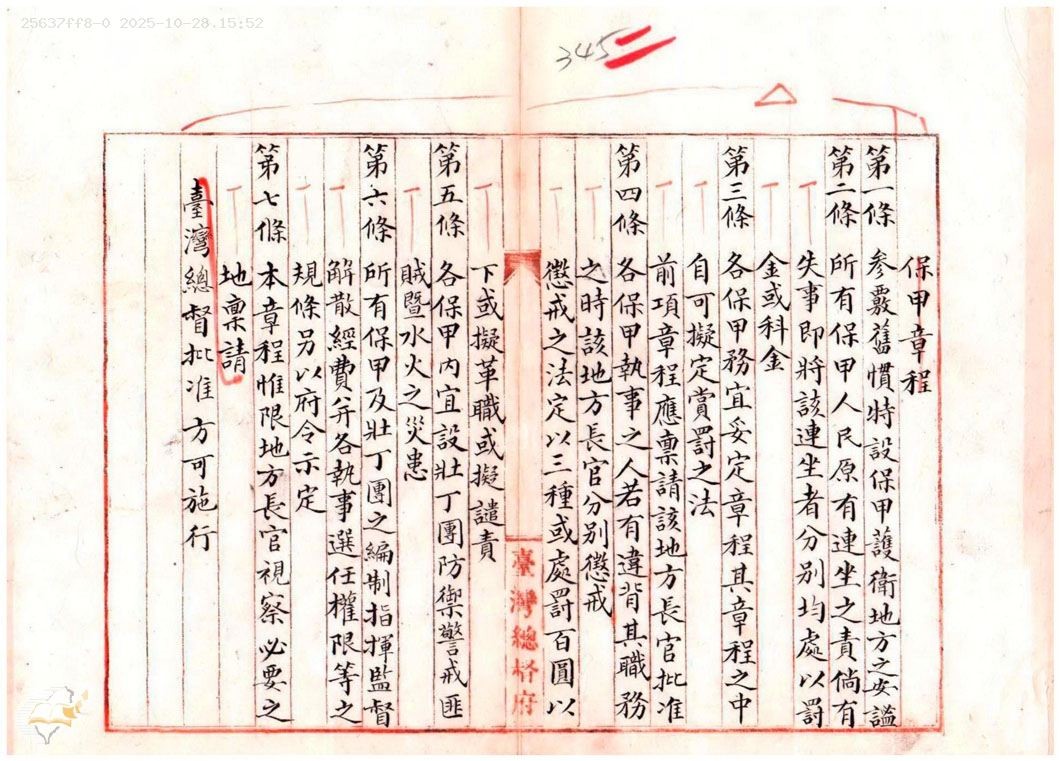 25637ff8-0 2025-10-28.15:52
345
保甲章程
第一條 參覈舊慣特設保甲護衛地方之安謐
第二條 所有保甲人民原有連坐之責倘有
失事即將該連坐者分別均處以罰
金或科金
第三條 各保甲務宜妥定章程其章程之中
自可擬定賞罰之法
前項章程應稟請該地方長官批准
第四條 各保甲執事之人若有違背其職務
之時該地方長官分別懲戒
懲戒之法定以三種或處罰百圓以
臺灣總督府
下或擬革職或擬譴責
第五條 各保甲內宜設壯丁團防禦警戒匪
賊暨水火之災患
第六條 所有保甲及壯丁團之編制指揮監督
解散經費并各執事選任權限等之
規條另以府令示定
第七條 本章程惟限地方長官視察必要之
地稟請
臺灣總督批准方可施行